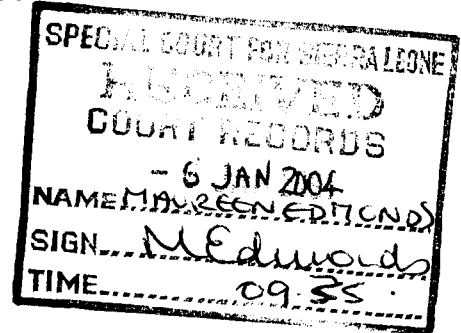 SPECIAL COURT FOR SIERRA LEONE
RECEIVED
COURT RECORDS
- 6 JAN 2004
NAME MAUREEN EDMONDS
SIGN MEdmonds
TIME 09.35